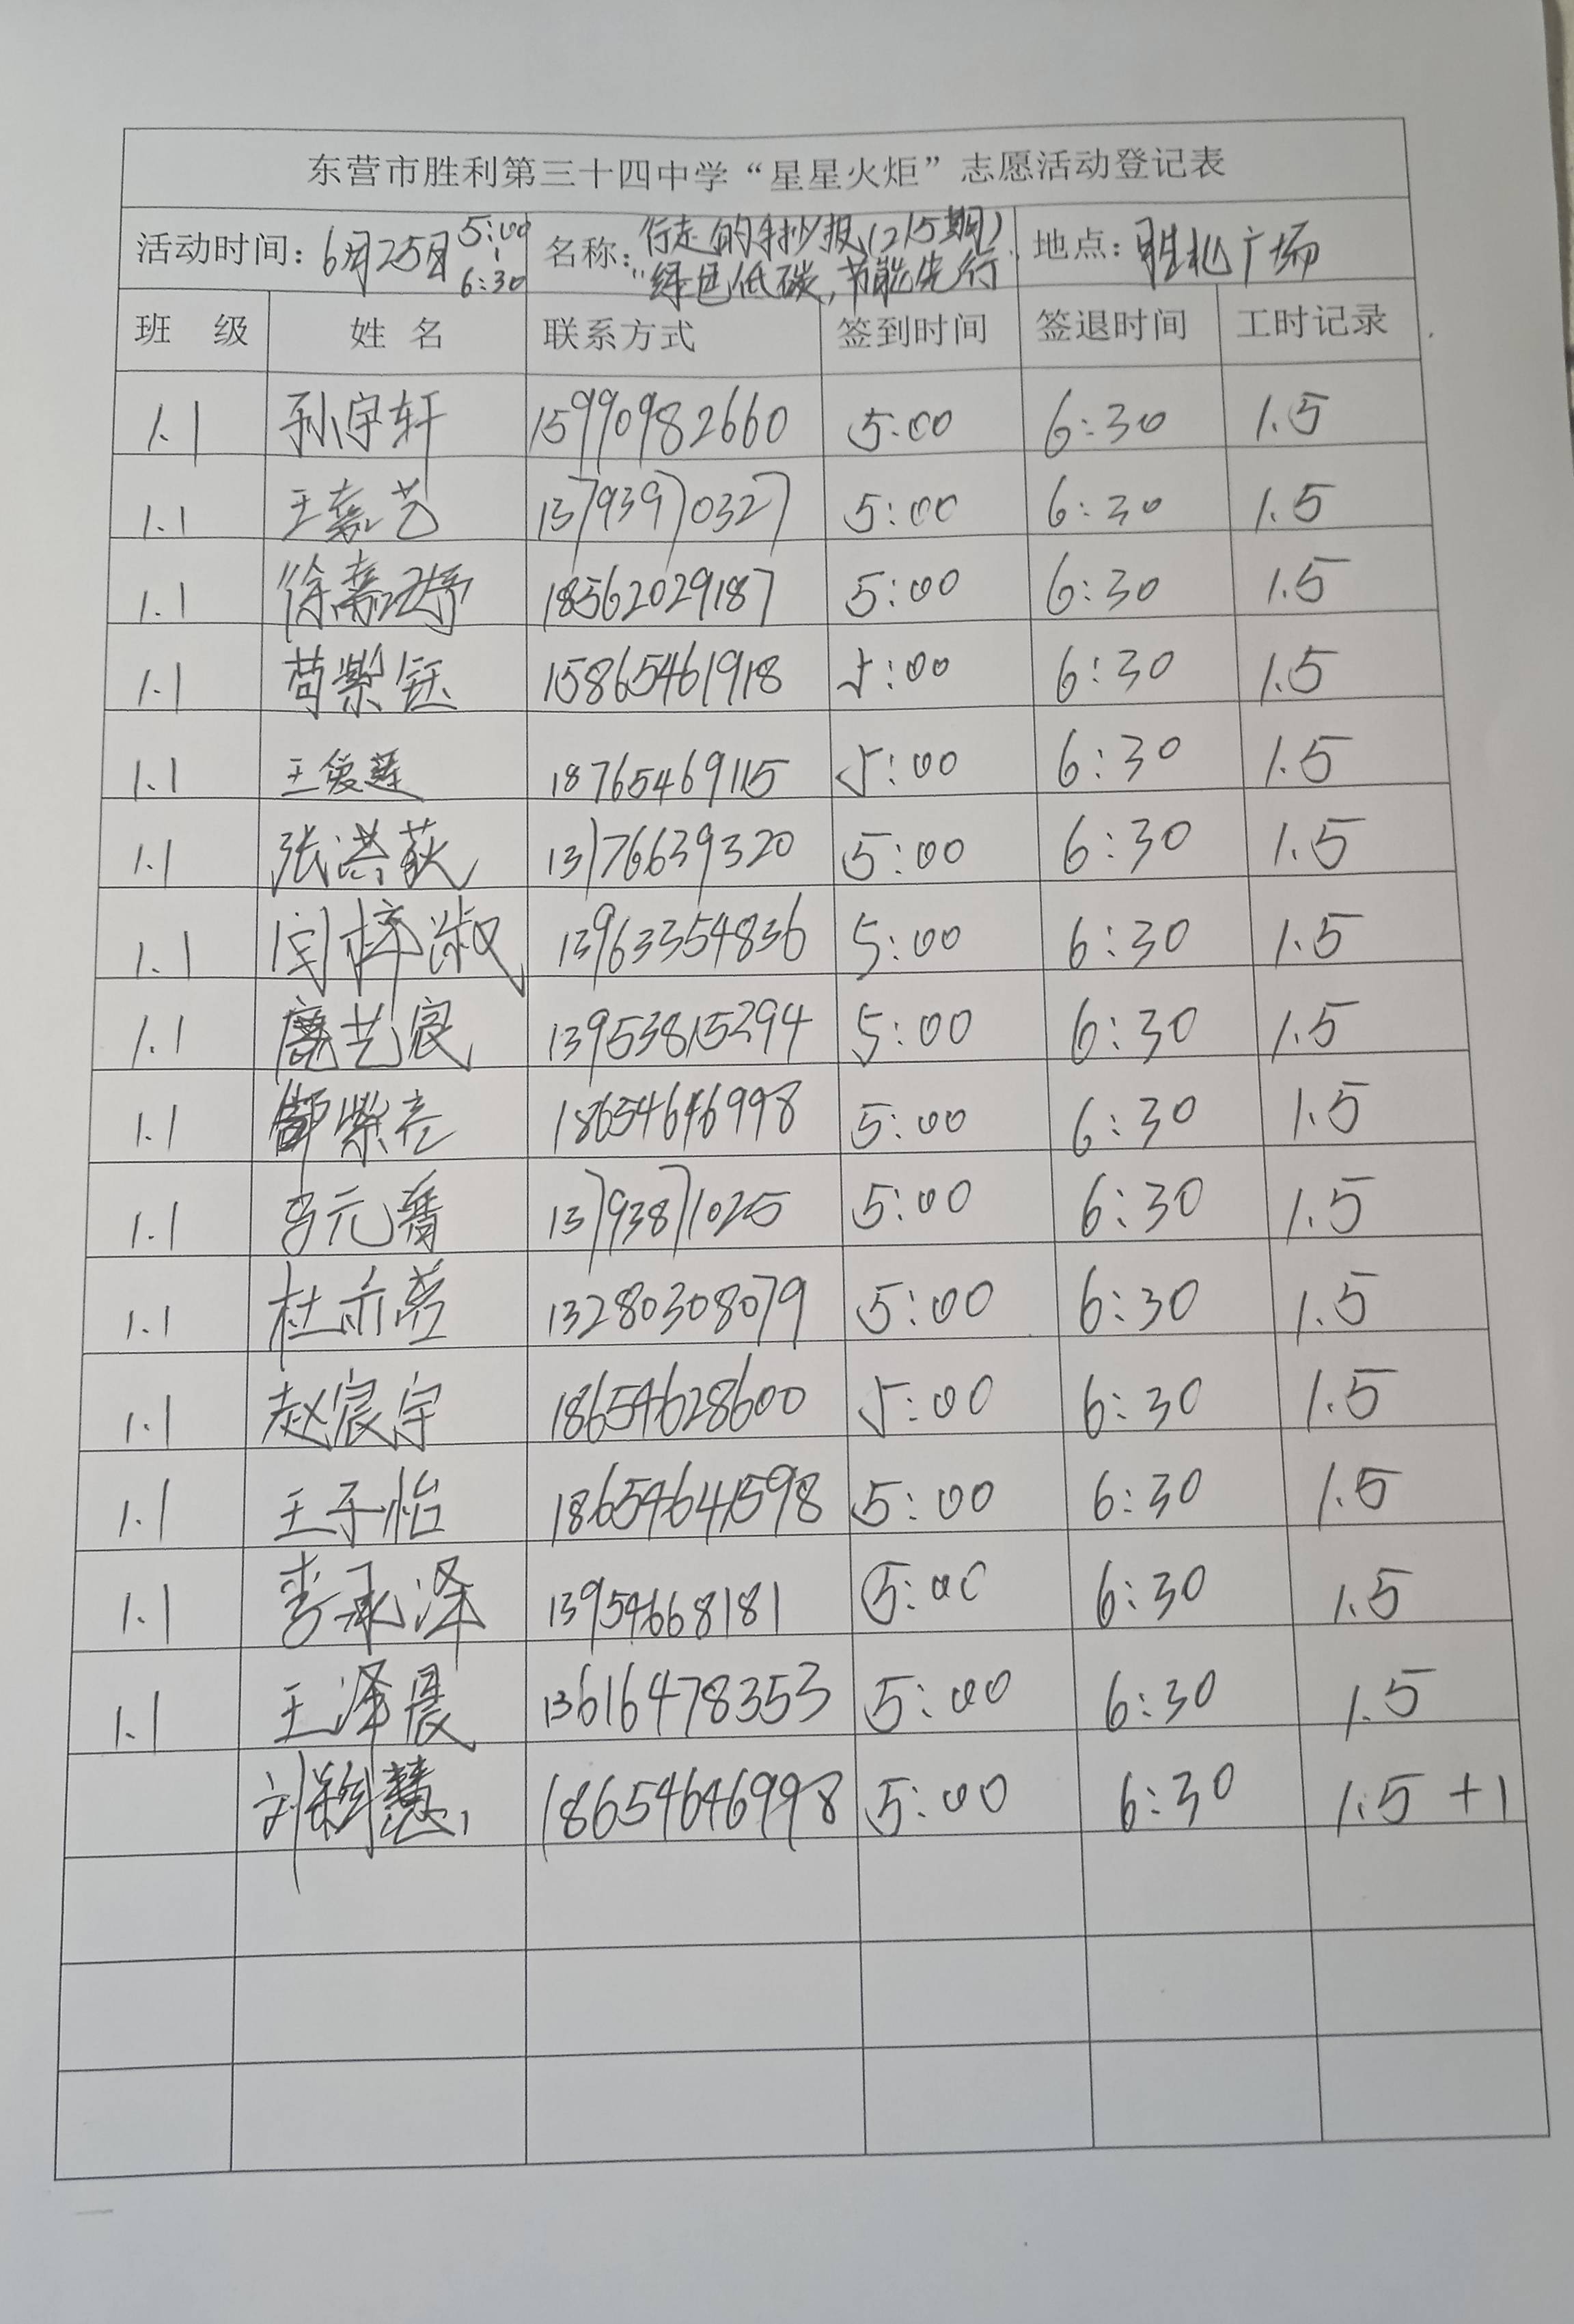 东营市胜利第三十四中学“星星火炬”志愿活动登记表
活动时间：6月25日 5:00 | 6:30 名称：行走的手抄报（215期）“绿色低碳，节能先行” 地点：胜北广场
班 级 姓 名 联系方式 签到时间 签退时间 工时记录
1.1 孙宇轩 15990982660 5:00 6:30 1.5
1.1 王嘉艺 13793970327 5:00 6:30 1.5
1.1 徐嘉 18562029187 5:00 6:30 1.5
1.1 苟紫钰 15865461918 5:00 6:30 1.5
1.1 王 18765469115 5:00 6:30 1.5
1.1 张洪荻 13176639320 5:00 6:30 1.5
1.1 闫梓淑 13963354836 5:00 6:30 1.5
1.1 艺宸 13953815294 5:00 6:30 1.5
1.1 紫 18654646998 5:00 6:30 1.5
1.1 马元 13793871025 5:00 6:30 1.5
1.1 杜亦 13280308079 5:00 6:30 1.5
1.1 赵宸宇 18654628600 5:00 6:30 1.5
1.1 王子怡 18654641598 5:00 6:30 1.5
1.1 李承泽 13954668181 5:00 6:30 1.5
1.1 王泽晨 13616478353 5:00 6:30 1.5
刘 慧 18654646998 5:00 6:30 1.5 +1